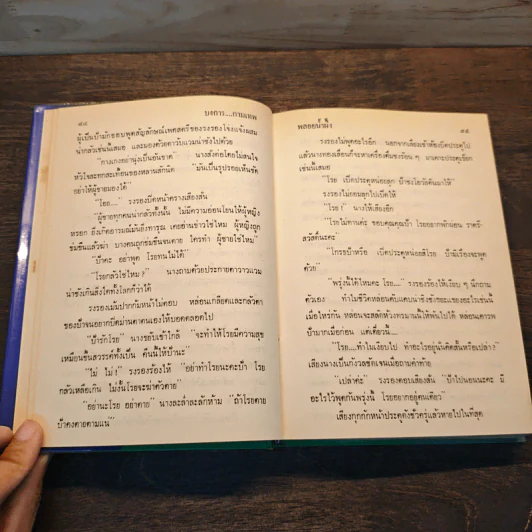 ๙๘
บงการ....กามเทพ
ผู้เป็นป้ามักชอบพูดสัญลักษณ์เพศสตรีของรงรองโจ่งแจ้งผสม
น่ากลัวเช่นนี้เสมอ และมองด้วยตาวับแวมน่าชังไปด้วย
"กางเกงอย่านุ่งเป็นอันขาด" นางสั่งต่อโดยไม่สนใจ
หัวใจสะทกสะท้อนของหลานสักนิด "มันเป็นรูปรอยเห็นชัด
อย่าให้ผู้ชายมองได้"
"โธ่...." รงรองบิดหน้าครางเสียงสั่น
"ผู้ชายทุกคนน่ากลัวทั้งนั้น ไม่มีความอ่อนโยนให้ผู้หญิง
หรอก ถึงเกิดอารมณ์มันยิ่งทารุณ เคยอ่านข่าวใช่ไหม ผู้หญิงถูก
ข่มขืนแล้วฆ่า บางคนถูกข่มขืนจนตาย ใครทำ ผู้ชายใช่ไหม"
"ป้าคะ อย่าพูด โรยทนไม่ได้"
"โรยกลัวใช่ไหม?" นางถามด้วยประกายตาวาวแวม
น่าชังเกินสิ่งใดทั้งโลกก็ว่าได้
รงรองเม้มปากก้มหน้าไม่ตอบ หล่อนเกลียดและกลัวตา
ของป้าจนอยากปิดม่านตาตนเองให้บอดตลอดไป
"ป้ารักโรย" นางขยับเข้าใกล้ "จะทำให้โรยมีความสุข
เหมือนขึ้นสวรรค์ทั้งเป็น คืนนี้ให้ป้านะ"
"ไม่ ไม่!" รงรองร้องไห้ "อย่าทำโรยนะคะป้า โรย
กลัวเหลือเกิน ไม่งั้นโรยจะฆ่าตัวตาย"
"อย่านะโรย อย่าตาย" นางละล่ำละลักห้าม "ถ้าโรยตาย
ป้าคงตายตามแน่"
พลอยน้ำผึ้ง
๙๙
รงรองไม่พูดอะไรอีก นอกจากเดินเข้าห้องปิดประตูไป
แล้วนางทองเลื่อนก็จะหาเครื่องดื่มชงร้อน ๆ มาเคาะประตูเรียก
เช่นนี้เสมอ
"โรย เปิดประตูหน่อยลูก ป้าชงโอวัลตินมาให้"
รงรองไม่ยอมลุกไปเปิดให้
"โรย!" นางให้เสียงอีก
"โรยไม่ทานค่ะ ขอบคุณคุณป้า โรยอยากพักผ่อน ราตรี-
สวัสดิ์นะคะ"
"โกรธป้าหรือ เปิดประตูหน่อยสิโรย ป้ามีเรื่องจะพูด
ด้วย"
"พรุ่งนี้ได้ไหมคะ โรย...." รงรองร้องไห้เงียบ ๆ นึกถาม
ตัวเอง ทำไมชีวิตหล่อนคับแคบน่าชิงชังขยะแขยงอะไรเช่นนี้
เมื่อไหร่กัน หล่อนจะสลัดห้วงทรมานนี้ให้พ้นไปได้ หล่อนเคารพ
ป้ามากเมื่อก่อน แต่เดี๋ยวนี้....
"โรย....ทำไมเงียบไป ทำอะไรอยู่นั่นคิดสั้นหรือเปล่า?"
เสียงนางเป็นกังวลชัดเจนเมื่อถามคำท้าย
"เปล่าค่ะ" รงรองตอบเสียงสั่น "ป้าไปนอนนะคะ มี
อะไรไว้พูดกันพรุ่งนี้ โรยอยากอยู่คนเดียว"
เสียงกุกกักหน้าประตูดังชั่วครู่แล้วหายไปในที่สุด